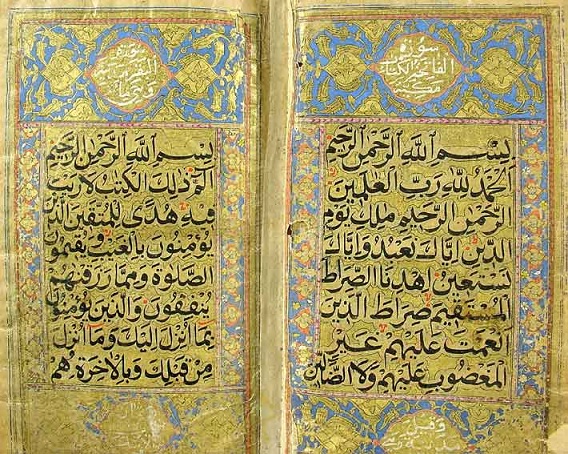 سورة
الفاتحة الكتاب
مكية
بسم الله الرحمن الرحيم
الحمد لله رب العلمين
الرحمن الرحيم ملك يوم
الدين اياك نعبد واياك
نستعين اهدنا الصراط
المستقيم صراط الذين
انعمت عليهم غير
المغضوب عليهم ولا الضالين
وقيل
سورة
البقرة
بسم الله الرحمن الرحيم
الم ذلك الكتب لا ريب
فيه هدى للمتقين الذين
يؤمنون بالغيب ويقيمون
الصلوة ومما رزقنهم
ينفقون والذين يؤمنون
بما انزل اليك وما انزل
من قبلك وبالاخرة هم